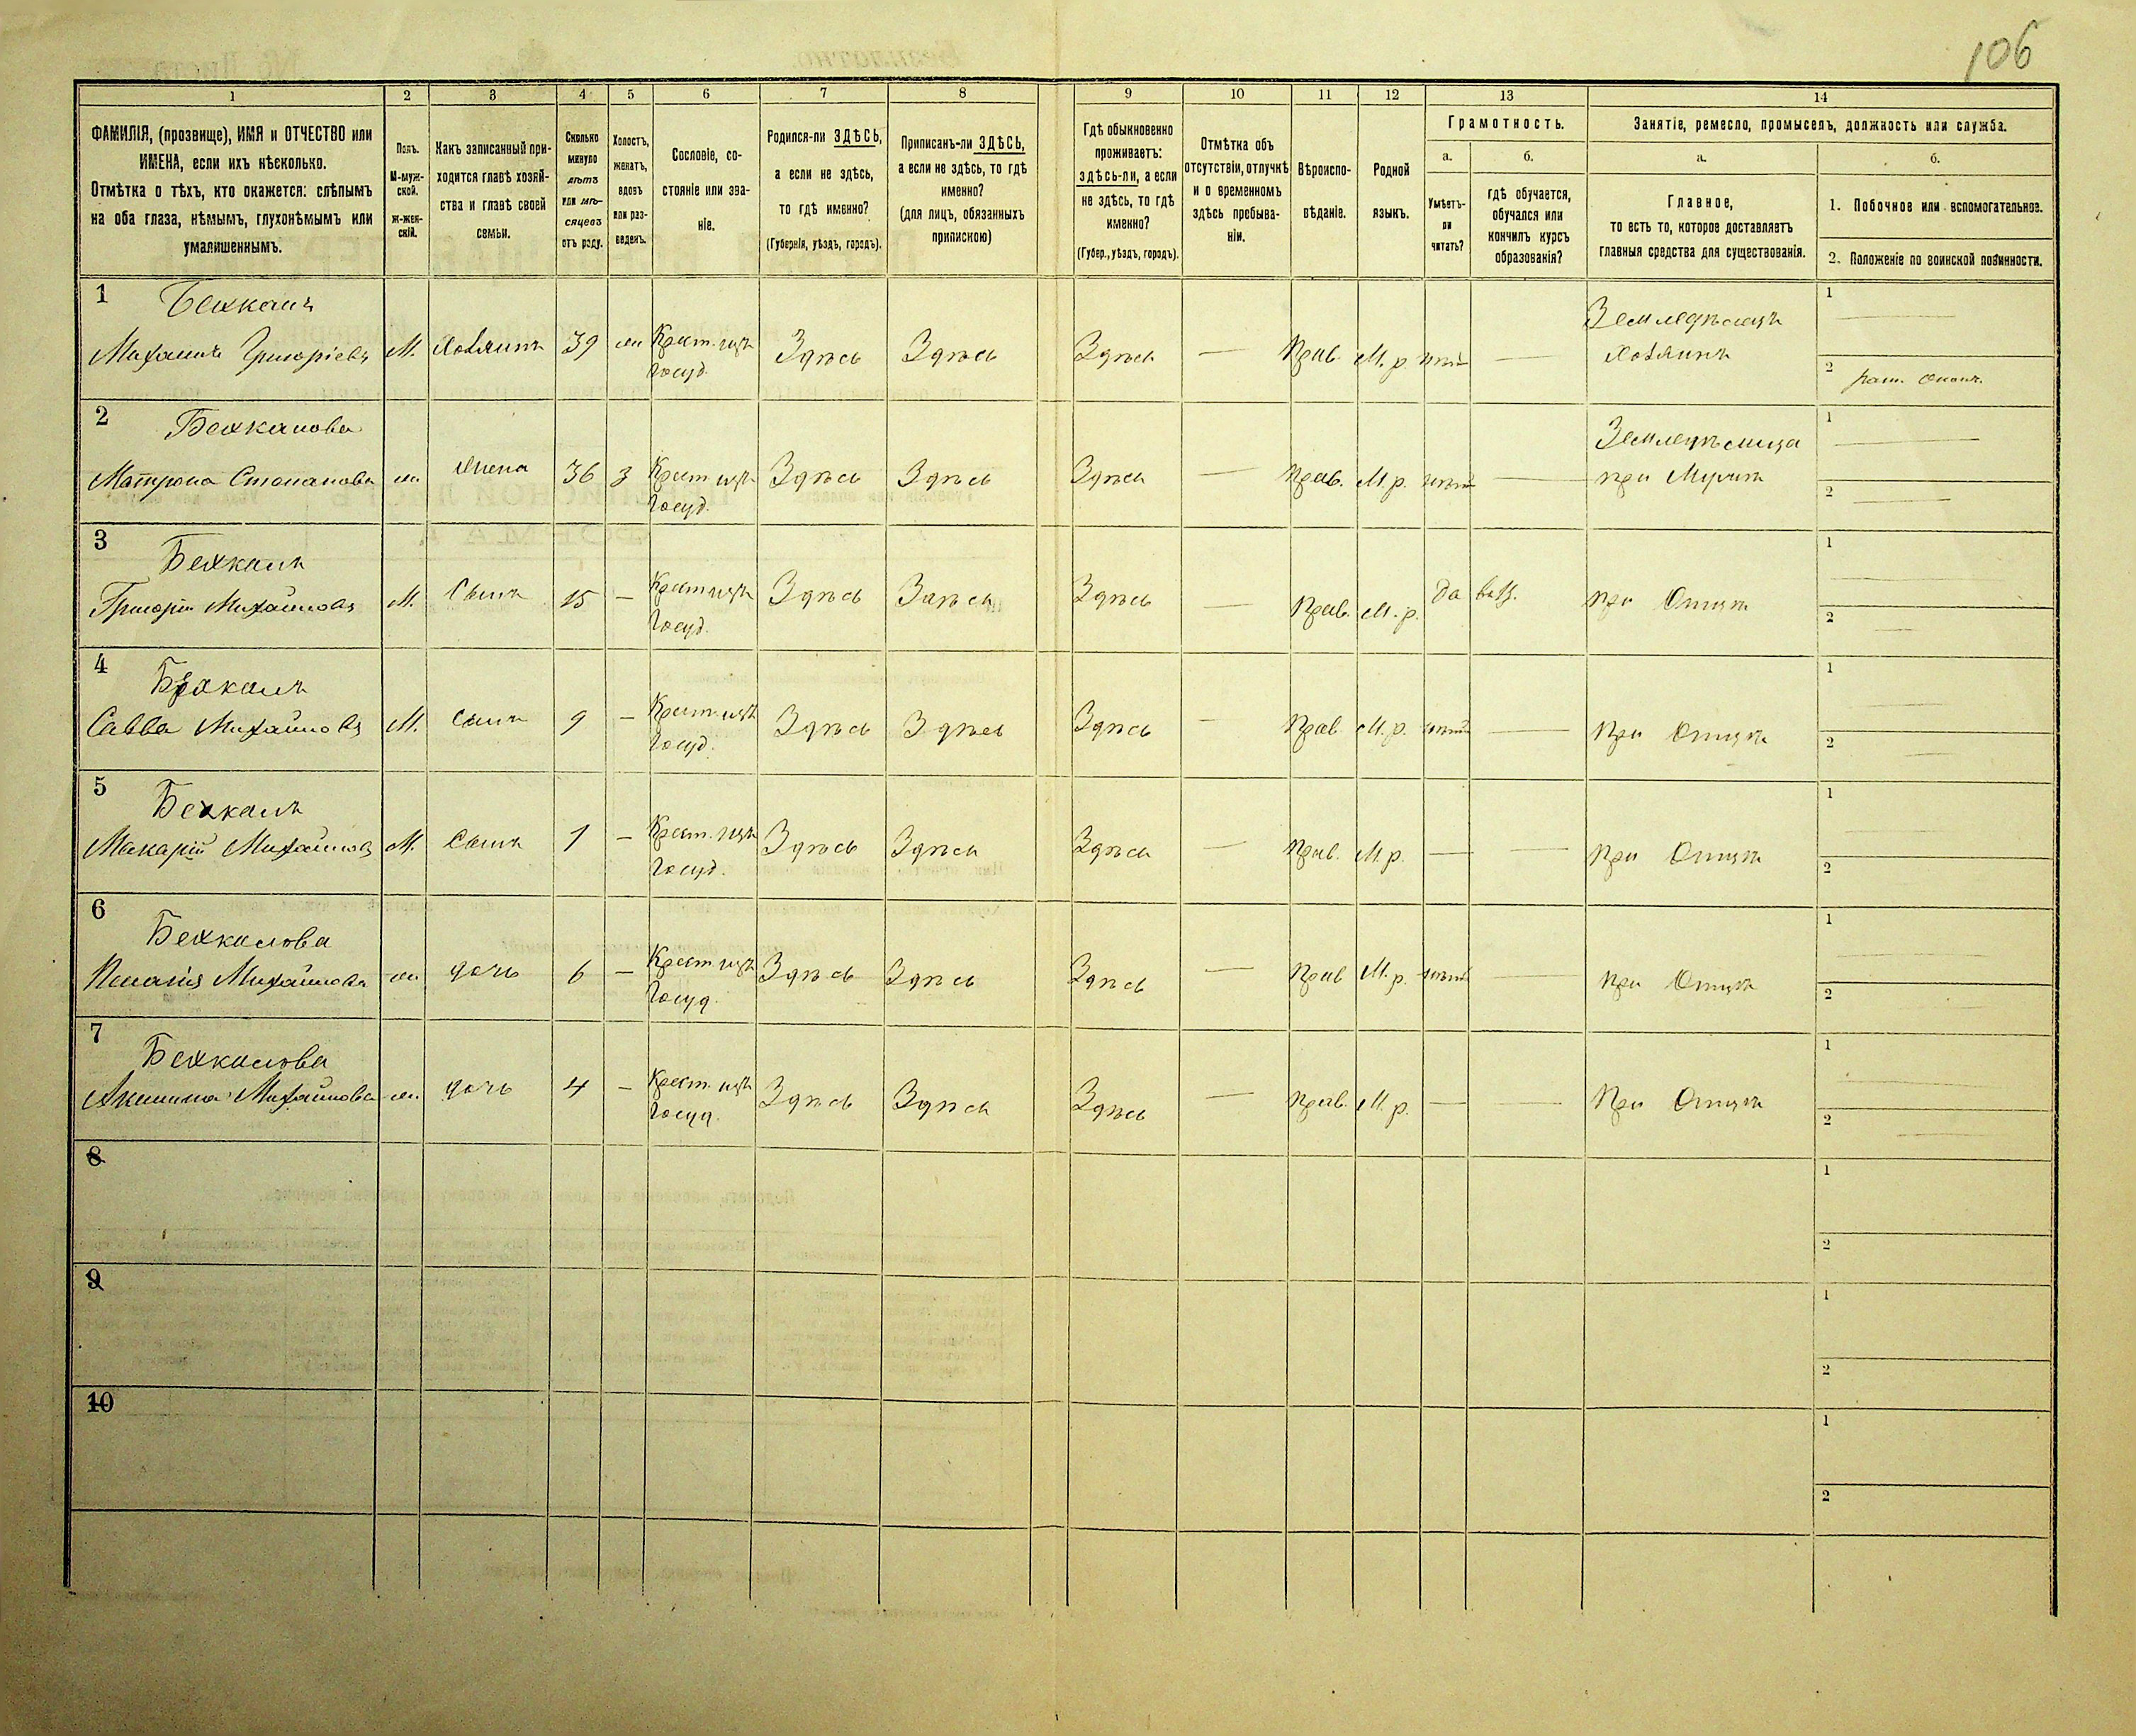 106
1 2 3 4 5 6 7 8 9 10 11 12 13 14
ФАМИЛІЯ, (прозвище), ИМЯ и ОТЧЕСТВО или
ИМЕНА, если ихъ нѣсколько.
Отмѣтка о тѣхъ, кто окажется: слѣпымъ
на оба глаза, нѣмымъ, глухонѣмымъ или
умалишеннымъ.
Полъ.
М-муж-
ской.
Ж-жен-
скій.
Какъ записанный при-
ходится главѣ хозяй-
ства и главѣ своей
семьи.
Сколько
минуло
лѣтъ
или мѣ-
сяцевъ
отъ роду.
Холостъ,
женатъ,
вдовъ
или раз-
веденъ.
Сословіе, со-
стояніе или зва-
ніе.
Родился-ли ЗДѢСЬ,
а если не здѣсь,
то гдѣ именно?
(Губернія, уѣздъ, городъ).
Приписанъ-ли ЗДѢСЬ,
а если не здѣсь, то гдѣ
именно?
(для лицъ, обязанныхъ
припискою)
Гдѣ обыкновенно
проживаетъ:
здѣсь-ли, а если
не здѣсь, то гдѣ
именно?
(Губер., уѣздъ, городъ).
Отмѣтка объ
отсутствіи, отлучкѣ
и о временномъ
здѣсь пребыва-
ніи.
Вѣроиспо-
вѣданіе.
Родной
языкъ.
Грамотность.
а.
Умѣетъ-
ли
читать?
б.
гдѣ обучается,
обучался или
кончилъ курсъ
образованія?
Занятіе, ремесло, промыселъ, должность или служба.
а.
Главное,
то есть то, которое доставляетъ
главныя средства для существованія.
б.
1. Побочное или вспомогательное.
2. Положеніе по воинской повинности.
1 Бежкалъ
Михаилъ Григоріевъ М. Хозяинъ 39 ж Крест. изъ Госуд. Здѣсь Здѣсь Здѣсь — Прав. М.р. нѣтъ — Земледѣлецъ Хозяинъ 1 — 2
2 Бежкалова
Матрона Степанова ж жена 36 З Крест изъ Госуд. Здѣсь Здѣсь Здѣсь — Прав. М.р. нѣтъ — Земледѣлица при Мужѣ 1 — 2 —
3 Бежкалъ
Григорій Михайловъ М. Сынъ 15 — Крест изъ Госуд. Здѣсь Здѣсь Здѣсь — Прав. М.р. да при Отцѣ 1 — 2 —
4 Бежкалъ
Савва Михайловъ М. Сынъ 9 — Крест. изъ Госуд. Здѣсь Здѣсь Здѣсь — Прав. М.р. нѣтъ — При Отцѣ 1 — 2 —
5 Бежкалъ
Макарій Михайловъ М. Сынъ 1 — Крест. изъ Госуд. Здѣсь Здѣсь Здѣсь — Прав. М.р. — — При Отцѣ 1 — 2 —
6 Бежкалова
Пелагія Михайлова ж дочь 6 — Крест изъ Госуд. Здѣсь Здѣсь Здѣсь — Прав М.р. нѣтъ — При Отцѣ 1 — 2 —
7 Бежкалова
Акилина Михайлова ж. дочь 4 — Крест. изъ Госуд. Здѣсь Здѣсь Здѣсь — Прав. М.р. — — При Отцѣ 1 — 2 —
8 1 2
9 1 2
10 1 2